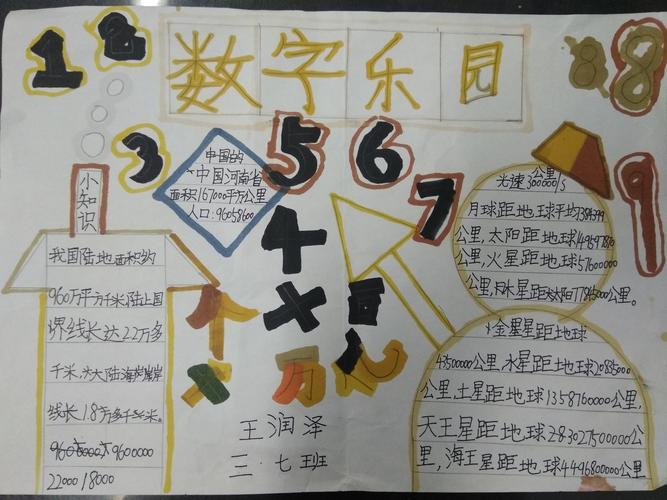 1 2
数字乐园
8 8
3
5 6
4
7
9
小知识
我国陆地面积约
960万平方千米,陆上国
界线长达2.2万多
千米,大陆海岸
线长1.8万多千米。
9600000
22000 18000
中国的
中国河南省
面积167000平方公里
人口:96058600
个
百
万
亿
王润泽
三·七班
光速300000公里/s
月球距地球平均
公里,太阳距地球149597870
公里,火星距地球57600000
公里,木星距太阳77845000公里。
金星距地球
43500000公里,水星距地球
公里,土星距地球1358760000公里,
天王星距地球2830275000000公
里,海王星距地球4496800000公里